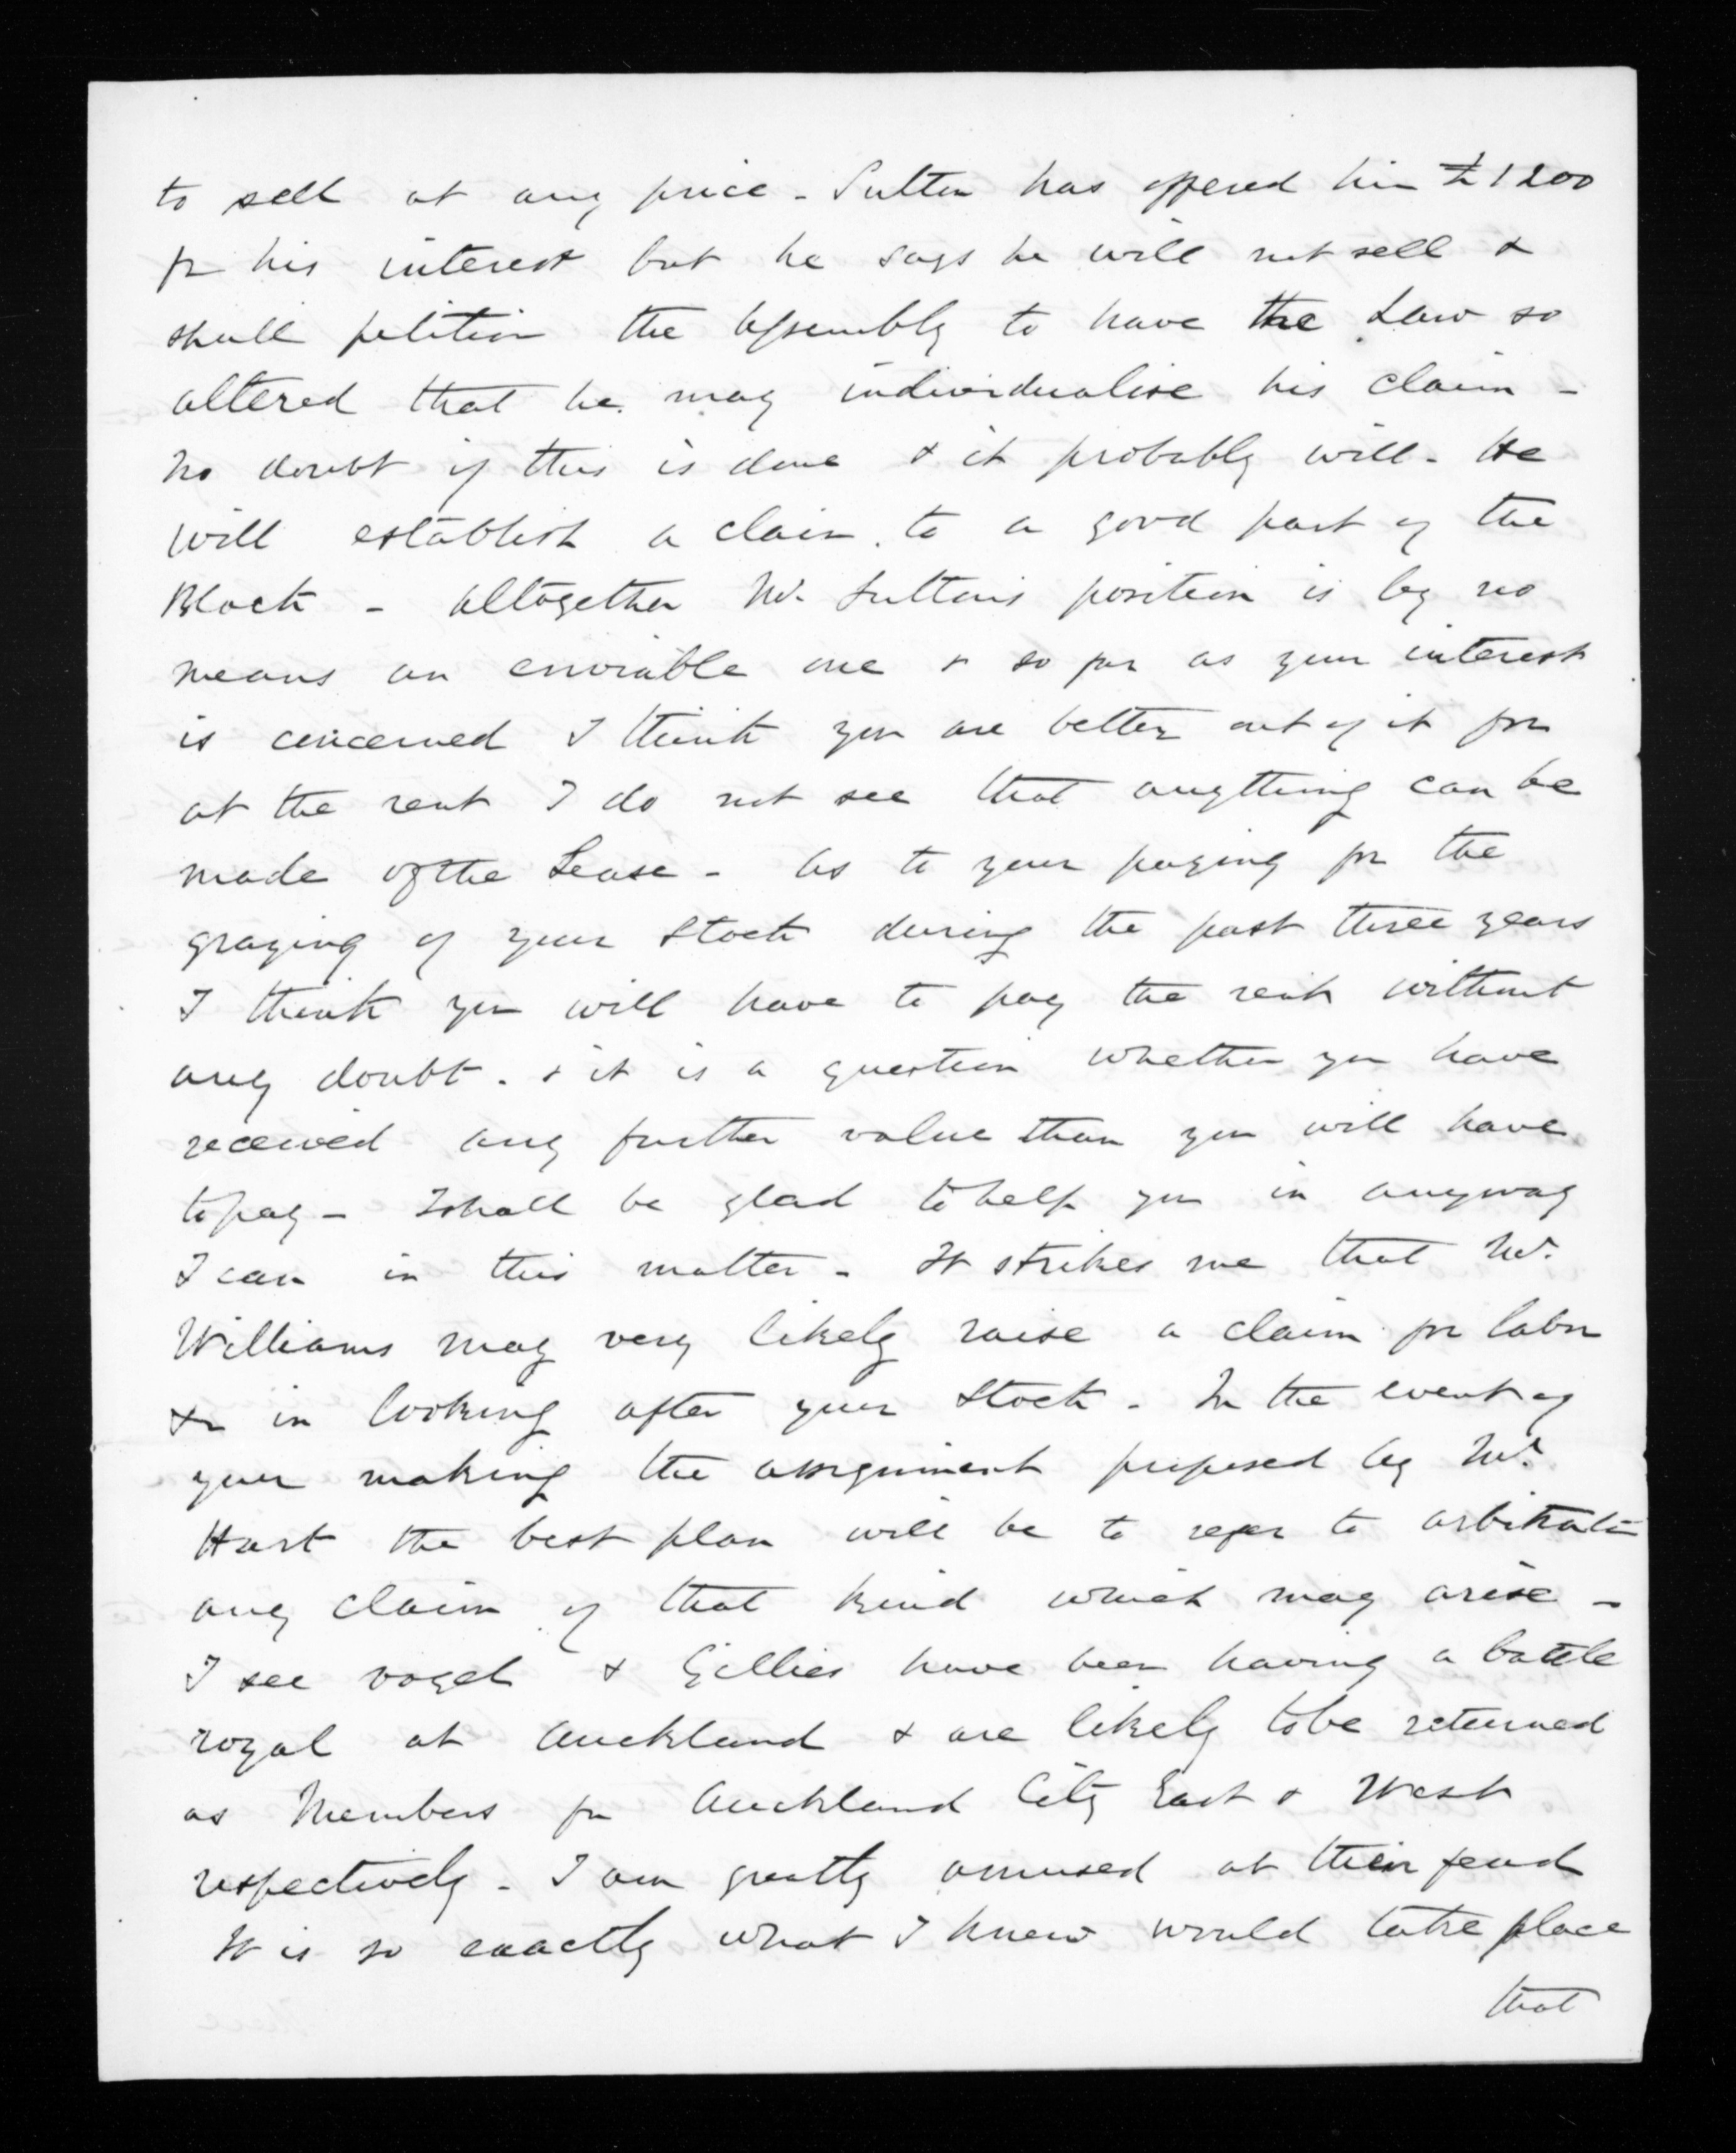 to sell at any price - Sutton has offered him £1200
for his interest but he says he will not sell &
shall petition the Assembly to have the Law so
altered that he may individualise his claim -
No doubt if this is done & it probably will - He
will establish a claim to a good part of the
Block - Altogether Mr. Sutton's position is by no
means an enviable one & so far as your interest
is concerned I think you are better out of it for
at the rent I do not see that anything can be
made of the Lease - As to your paying for the
grazing of your Stock during the past three years
I think you will have to pay the rent without
any doubt - & it is a question whether you have
received any further value than you will have
to pay - I shall be glad to help you in anyway
I can in this matter - It strikes me that Mr.
Williams may very likely raise a claim for labor
&c in looking after your Stock - In the event of
your making the assignment proposed by Mr.
Hart the best plan will be to refer to arbitration
any claim of that kind which may arise -
I see Vogel & Gillies have been having a battle
royal at Auckland & are likely to be returned
as Members for Auckland City East & West
respectively - I am greatly amused at their feud
It is so exactly what I knew would take place
that